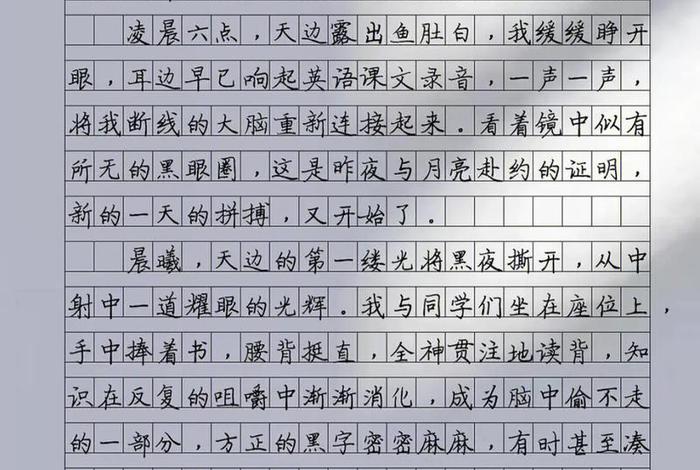 凌晨六点，天边露出鱼肚白，我缓缓睁开
眼，耳边早已响起英语课文录音，一声一声，
将我断线的大脑重新连接起来。看着镜中似有
所无的黑眼圈，这是昨夜与月亮赴约的证明，
新的一天的拼搏，又开始了。
晨曦，天边的第一缕光将黑夜撕开，从中
射中一道耀眼的光辉。我与同学们坐在座位上，
手中捧着书，腰背挺直，全神贯注地读背，知
识在反复的咀嚼中渐渐消化，成为脑中偷不走
的一部分，方正的黑字密密麻麻，有时甚至凑